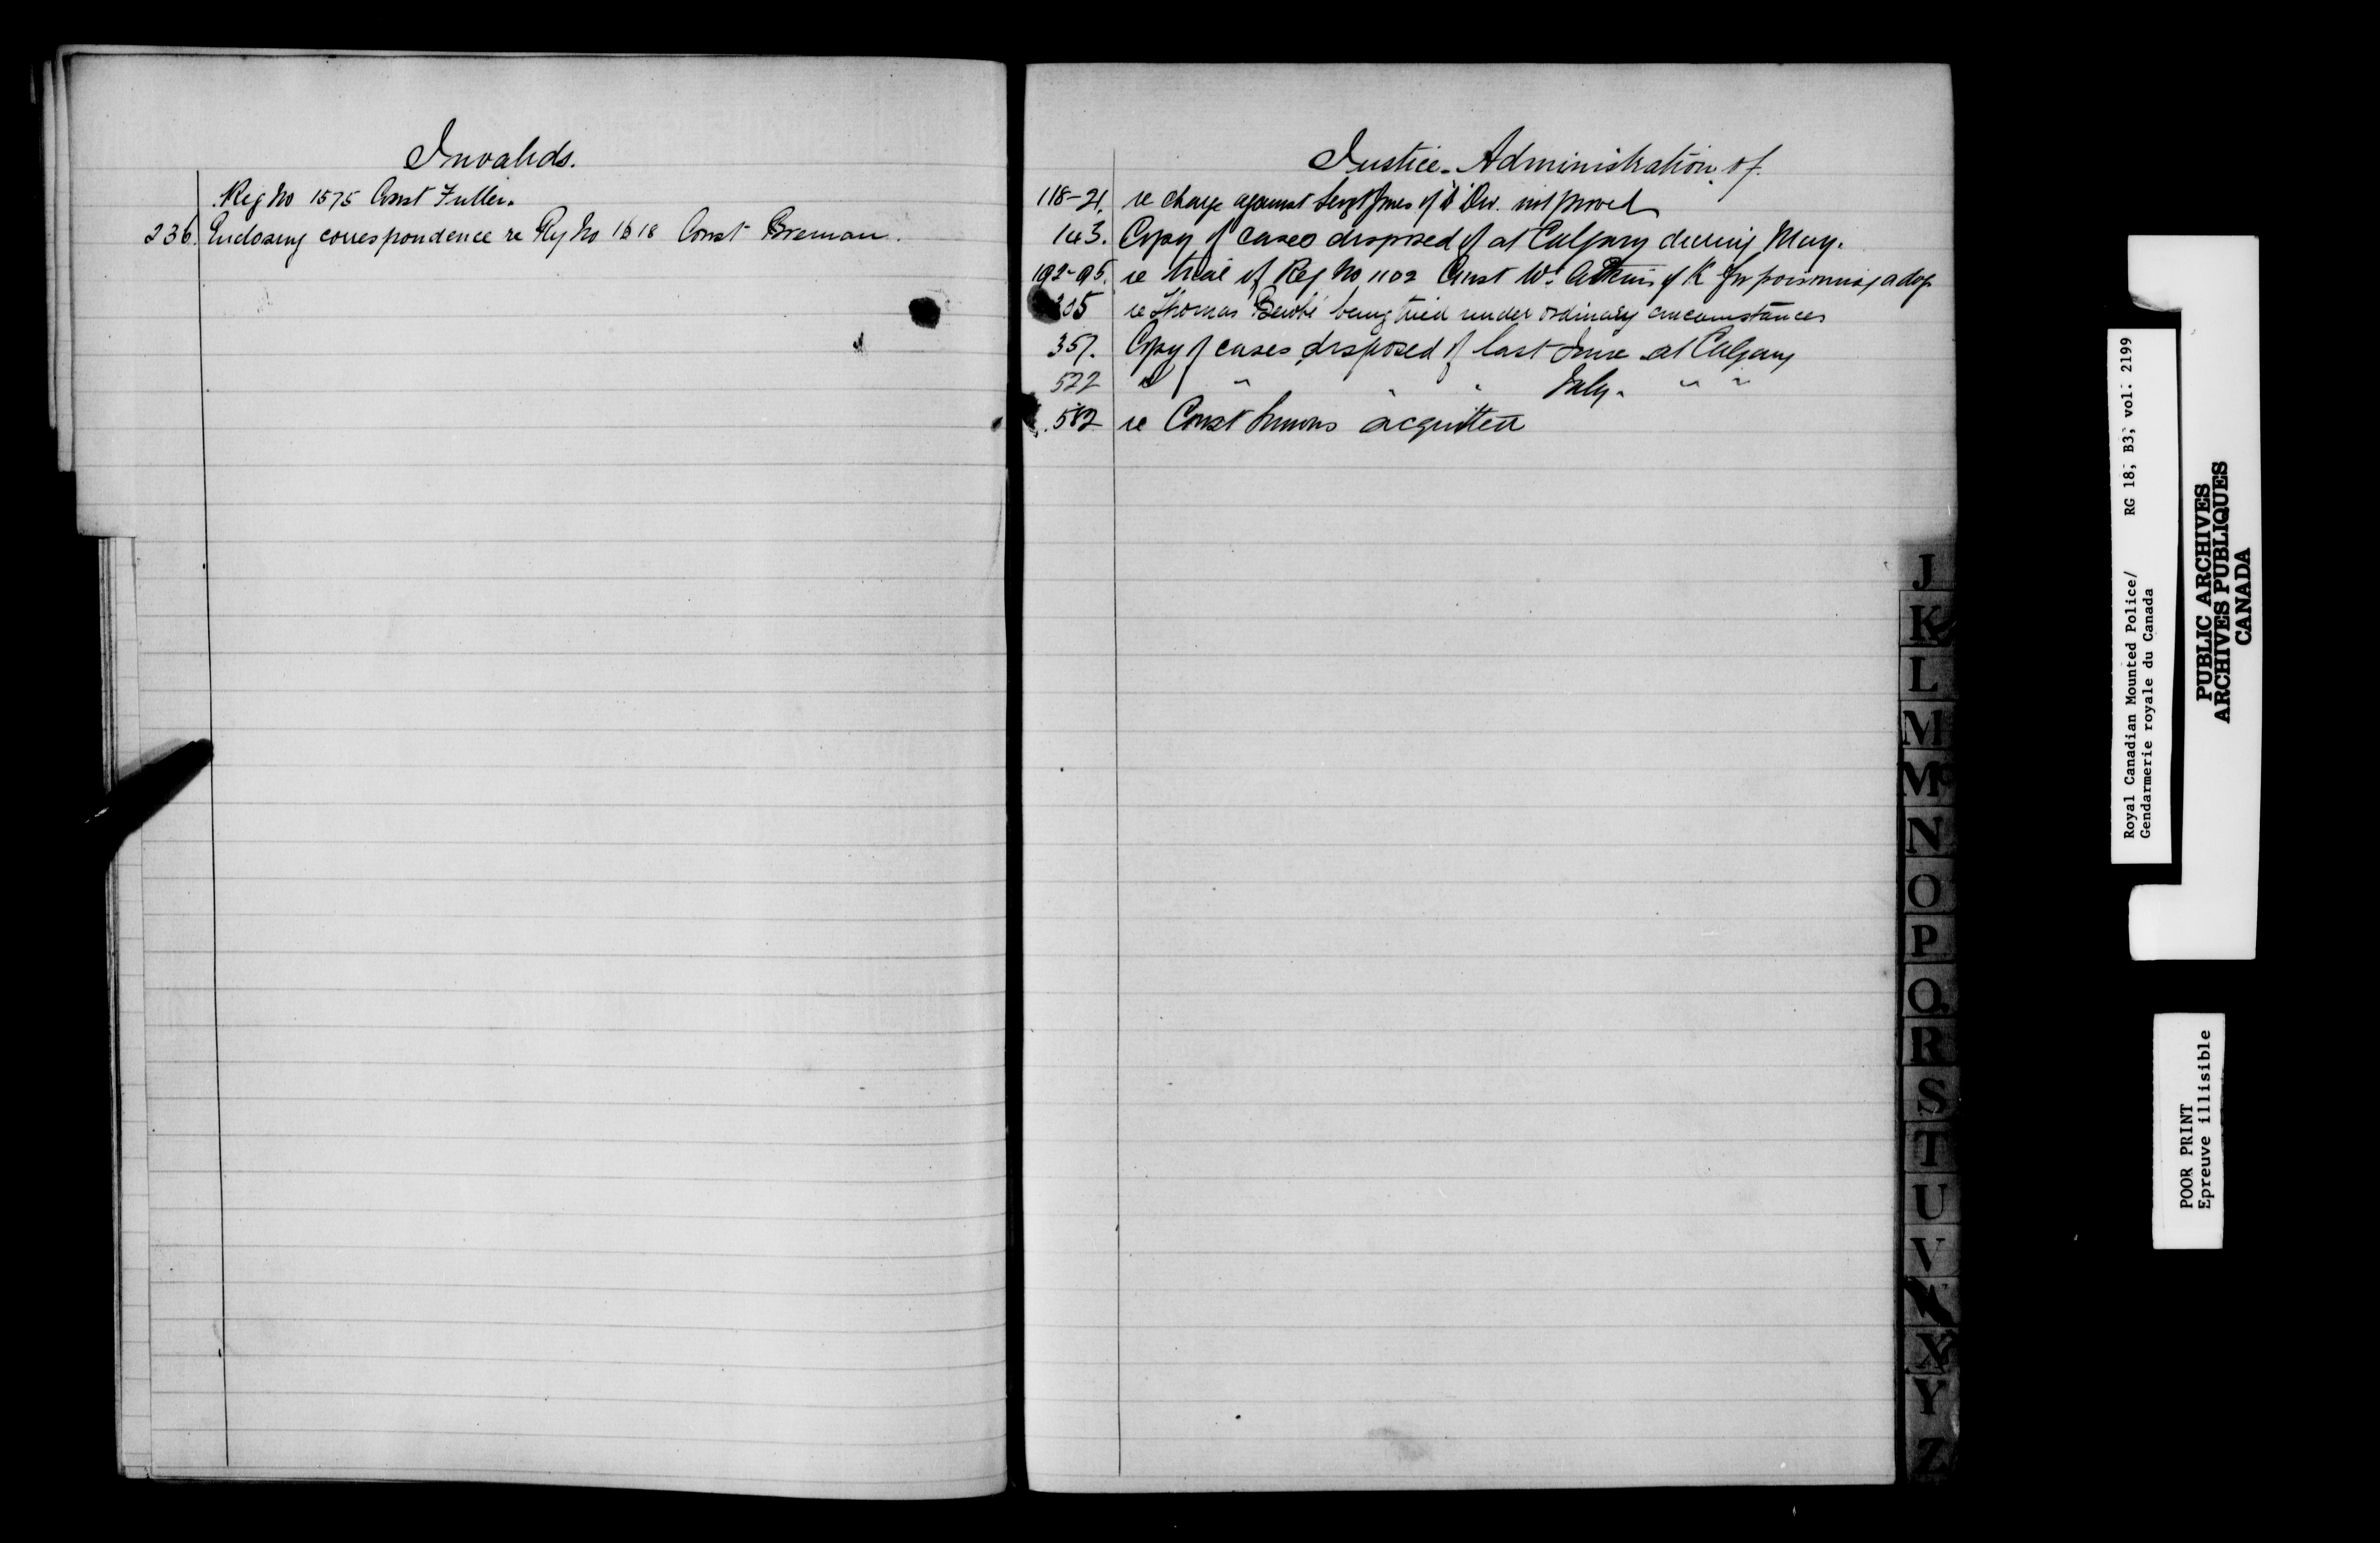 Invalids.
Reg No 1575 Const Fuller.
236. Enclosing correspondence re Reg No 1618 Const Breman.
Justice. Administration of
118-21. re charge against Sergt Jones of "D" Div. not proved
143. Copy of cases disposed of at Calgary during May.
192-95. re trial of Reg No 1102 Const Wm of K for poisoning a dog
305 re Thomas being tried under ordinary circumstances
357. Copy of cases disposed of last June at Calgary
522 " " " " July. " "
582 re Const acquitted
J
K
L
M
Mc
N
O
P
Q
R
S
T
U
V
X
Y
Z
Royal Canadian Mounted Police/ RG 18; B3; vol: 2199
Gendarmerie royale du Canada
PUBLIC ARCHIVES
ARCHIVES PUBLIQUES
CANADA
POOR PRINT
Epreuve illisible